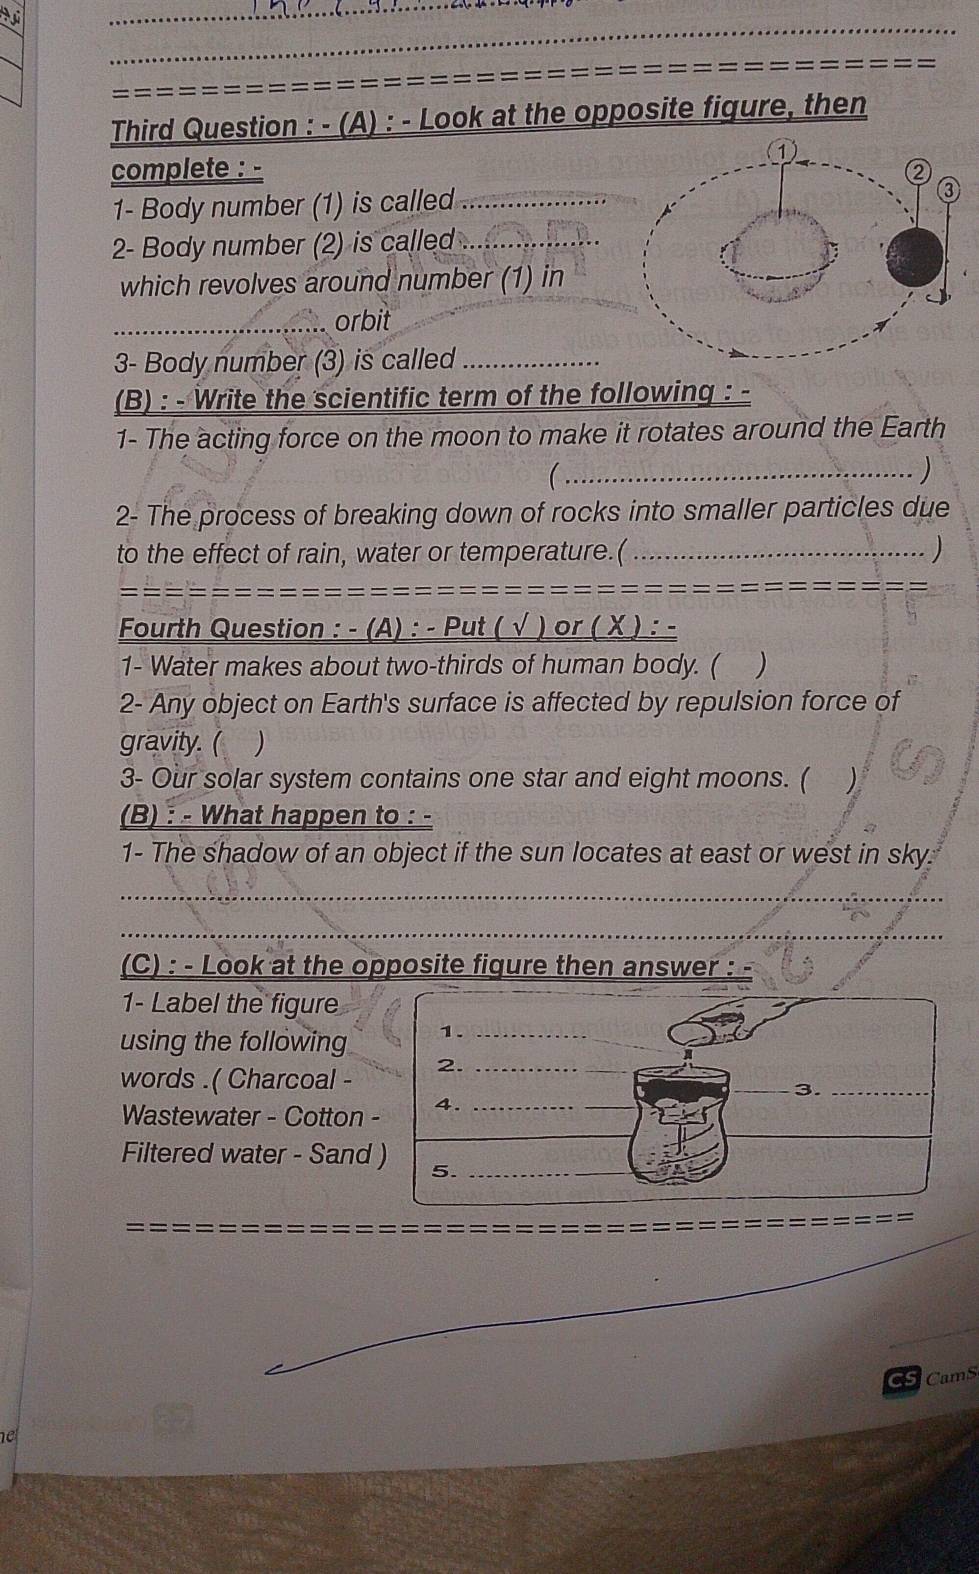 Third Question : - (A) : - Look at the opposite figure, then
complete : -
1- Body number (1) is called ..................
2- Body number (2) is called ..................
which revolves around number (1) in
........................... orbit
3- Body number (3) is called ..................
1
2
3
(B) : - Write the scientific term of the following : -
1- The acting force on the moon to make it rotates around the Earth
( ............................................. )
2- The process of breaking down of rocks into smaller particles due
to the effect of rain, water or temperature.( ..................................... )
==================================
Fourth Question : - (A) : - Put ( √ ) or ( X ) : -
1- Water makes about two-thirds of human body. (    )
2- Any object on Earth's surface is affected by repulsion force of
gravity. (    )
3- Our solar system contains one star and eight moons. (    )
(B) : - What happen to : -
1- The shadow of an object if the sun locates at east or west in sky.
(C) : - Look at the opposite figure then answer : -
1- Label the figure
using the following
words .( Charcoal -
Wastewater - Cotton -
Filtered water - Sand )
1. ..................
2. ..................
3. ..................
4. ..................
5. ..................
==================================
CS CamS